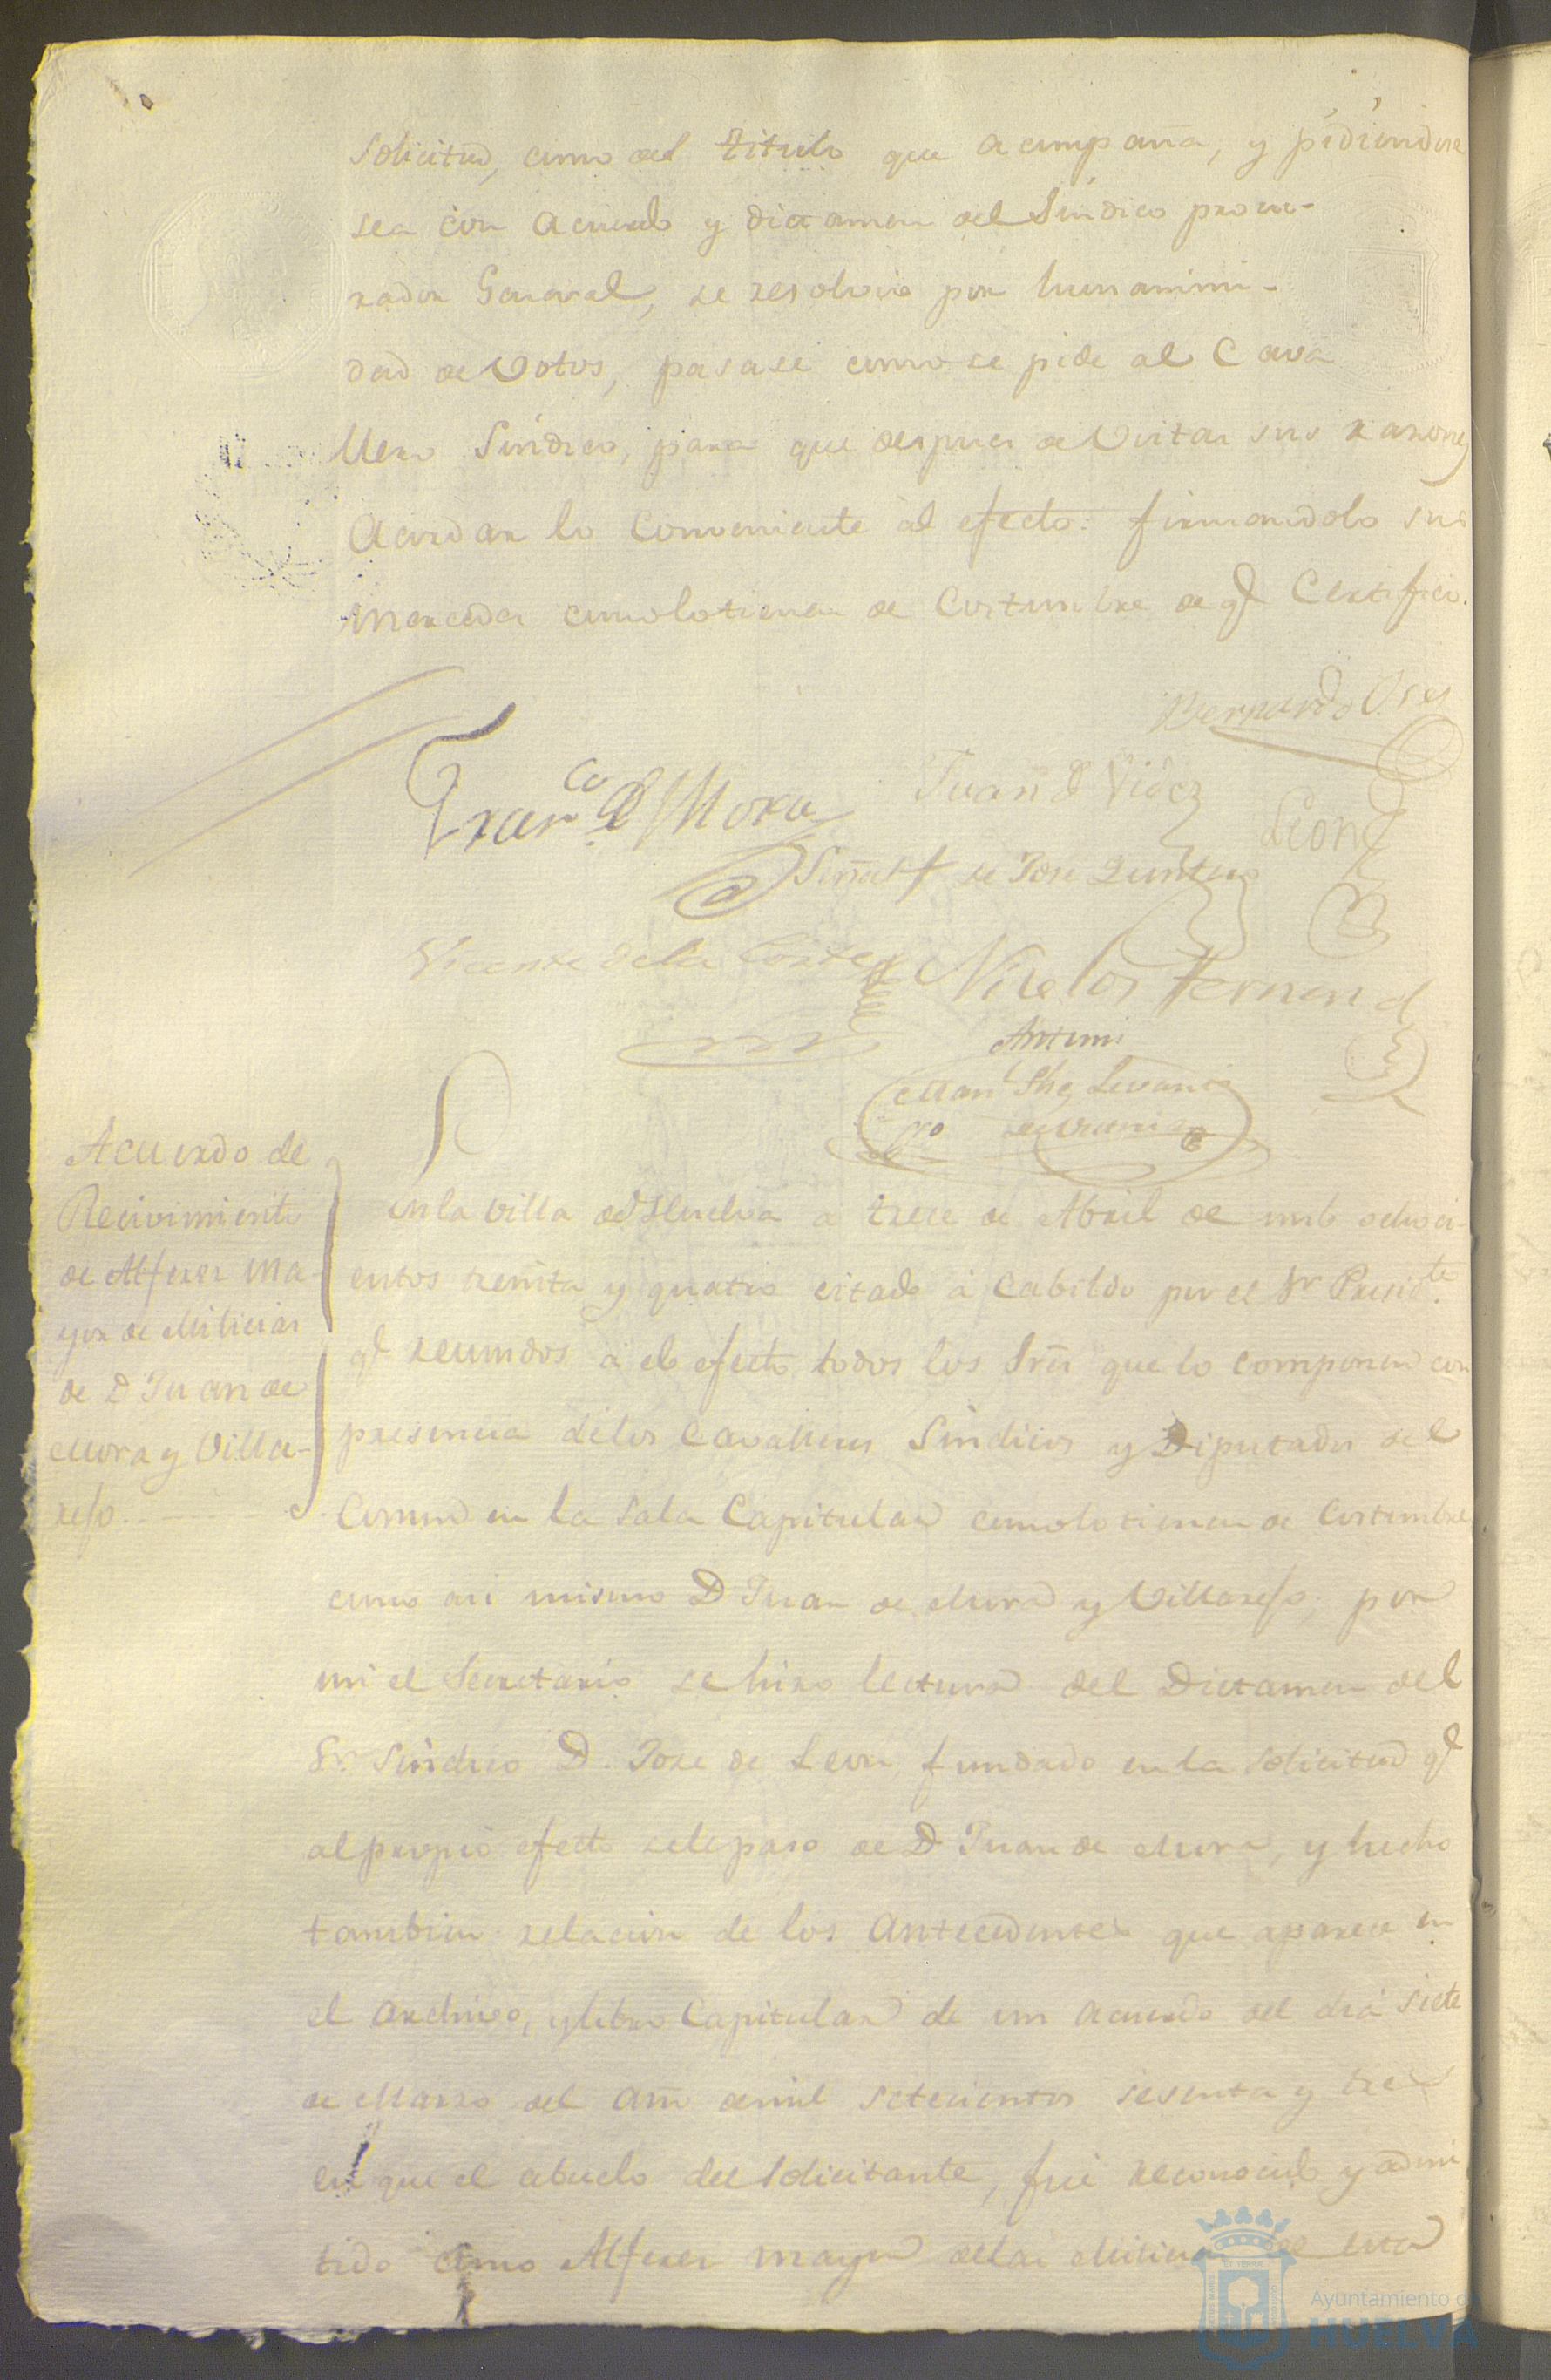 Solicitud, como del titulo que acompaña, y pidiendose
sea con acuerdo y dictamen del Sindico procu-
rador General, se resolvio por hunanimi-
dad de Votos, pasase como se pide al Cava
llero Sindico, para que despues de Vistas sus razones
Acordar lo conveniente al efecto: firmandolo sus
mercedes como lo tienen de Costumbre de q.e Certifico.
Bernardo Oses
Fran.co de Mora
Juan de
Leon
Señal + de Jose Quintero
Vicente de la Corte
Nicolas Fernand
Antemi
Man
Acuerdo de
Recivimiento
de Alferez Ma-
yor de Milicias
de D Juan de
Mora y Villa-
reso
En la villa de Huelva a trece de Abril de mil ochoci-
entos treinta y quatro citado a Cabildo por el S.r Presid.te
q.e reunidos a el efecto todos los Sres que lo componen con
presencia de los Cavalleros Sindicos y Diputados del
Comun en la Sala Capitular como lo tienen de Costumbre
como asi mismo D Juan de Mora y Villareso, por
mi el Secretario se hizo lectura del Dictamen del
S.r Sindico D. Jose de Leon, fundado en la solicitud q.e
al propio efecto se le paso de D Juan de Mora, y hecho
tambien relacion de los Antecedentes que aparece en
el Archivo, y libro Capitular de un Acuerdo del dia siete
de Marzo del año de mil setecientos sesenta y tres
en que el abuelo del Solicitante, fue reconocido y admi
tido como Alferez mayor de las Milicias de esta
Ayuntamiento de
HUELVA